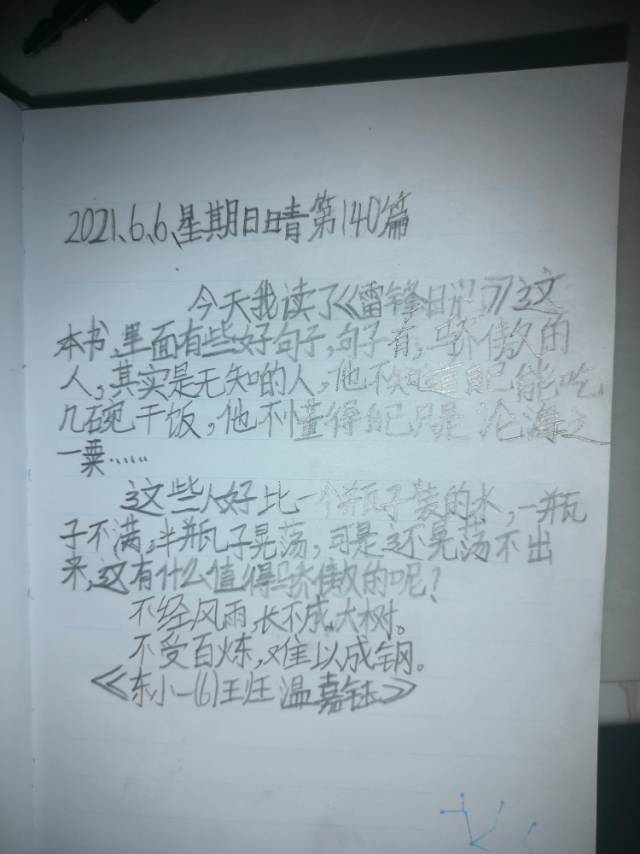 2021、6、6、星期日晴第140篇
今天我读了《雷锋日记》这
本书，里面有些好句子，句子有，骄傲的
人，其实是无知的人，他不知道自己能吃
几碗干饭，他不懂得自己只是沧海之
一粟……
这些人好比一个瓶子装的水，一瓶
子不满，半瓶子晃荡，可是还晃荡不出
来，这有什么值得骄傲的呢？
不经风雨，长不成大树。
不受百炼，难以成钢。
《东小一(6)王 温嘉钰》